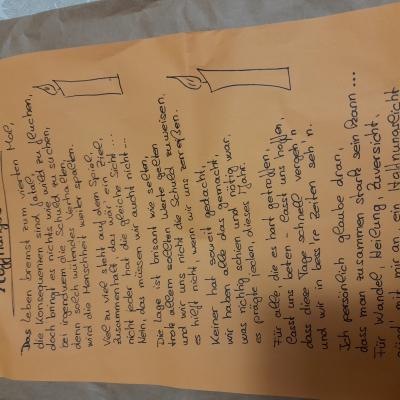 Das Leben bremst zum vierten Mal,
die Konsequenzen sind fatal,
doch bringt es nichts wie wild zu fluchen,
bei irgendwem die Schuld zu suchen,
denn solch wütendes Verhalten,
wird die Menschheit weiter spalten.
Viel zu viel steht auf dem Spiel,
zusammenhalt das wär' ein Ziel,
nicht jeder hat die gleiche Sicht...
Nein, das müssen wir auch nicht...
Die Lage ist brisant wie selten,
trotz allem sollten Werte gelten
und wir uns nicht die Schuld zuweisen,
es hilft nicht, wenn wir uns zerreißen.
Keiner hat soweit gedacht,
wir haben alle das gemacht,
was richtig schien und nötig war,
es prägte jeden, dieses Jahr.
Für alle die es hart getroffen,
lasst uns beten - lasst uns hoffen,
dass diese Tage schnell vergeh'n
und wir in bess're Zeiten seh'n.
Ich persönlich glaube dran,
dass man zusammen stark sein kann...
Für Wandel, Heilung, Zuversicht,
zünd' mit mir an, ein Hoffnungslicht